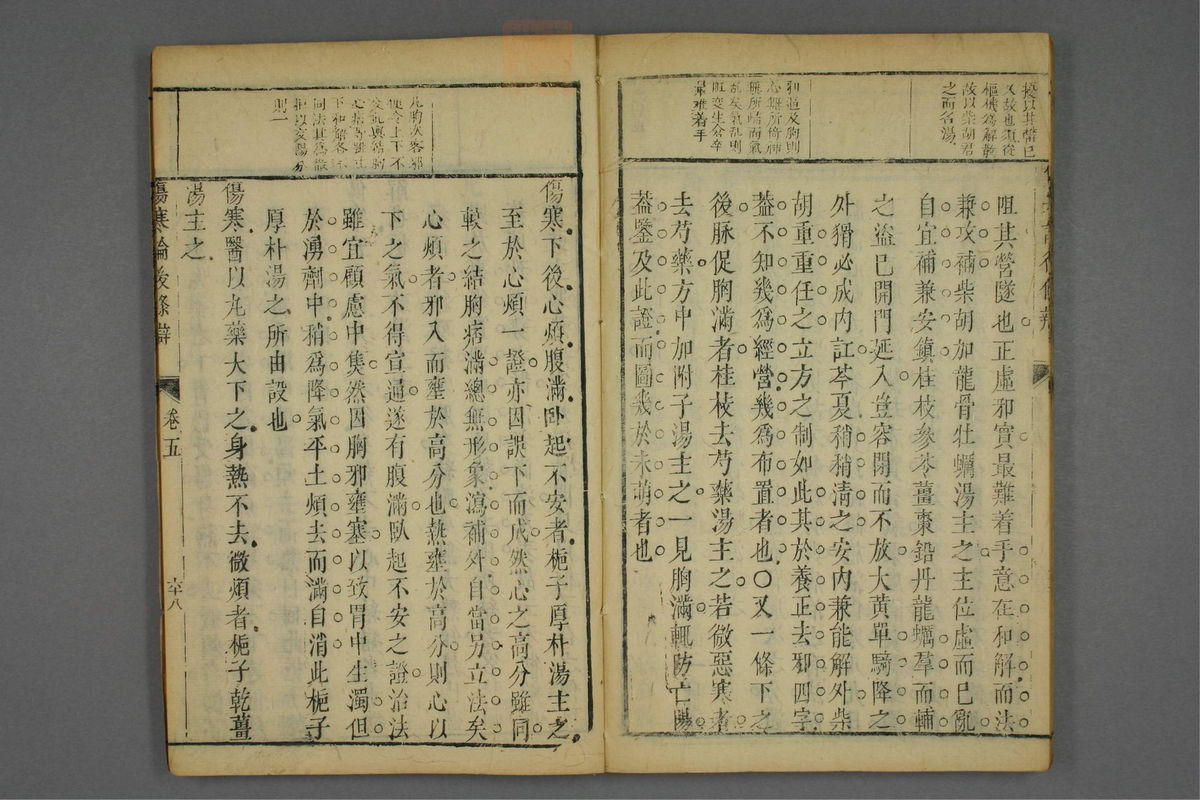 擾以其幣已
又故也須從
樞機為解散
故以柴胡君
之而名湯
阻其營隧也正虛邪實最難着手意在和解而法
兼攻補柴胡加龍骨牡蠣湯主之主位虛而已亂
自宜補兼安鎮桂枝參苓薑棗鉛丹龍蠣羣而輔
之盜已開門延入豈容閉而不放大黃單騎降之
外猾必成內訌芩夏稍稍清之安內兼能解外柴
胡重重任之立方之制如此其於養正去邪四字
葢不知幾為經營幾為布置者也○又一條下之
後脉促胸滿者桂枝去芍藥湯主之若微惡寒者
去芍藥方中加附子湯主之一見胸滿輒防亡陽
葢鑒及此證而圖幾於未萌者也
邪逼及胸則
心無所倚神
無所歸而氣
亂矣氣亂則
脏変生倉卒
最难着手
傷寒下後心煩腹滿卧起不安者梔子厚朴湯主之
至於心煩一證亦因誤下而成然心之高分雖同
較之結胸痞滿總無形象瀉補外自當另立法矣
心煩者邪入而壅於高分也熱壅於高分則心以
下之氣不得宣通遂有腹滿臥起不安之證治法
雖宜顧慮中焦然因胸邪壅塞以致胃中生濁但
於湧劑中稍為降氣平土煩去而滿自消此梔子
厚朴湯之所由設也
傷寒醫以丸藥大下之身熱不去微煩者梔子乾薑
湯主之
傷寒論後條辯
卷五
六十八